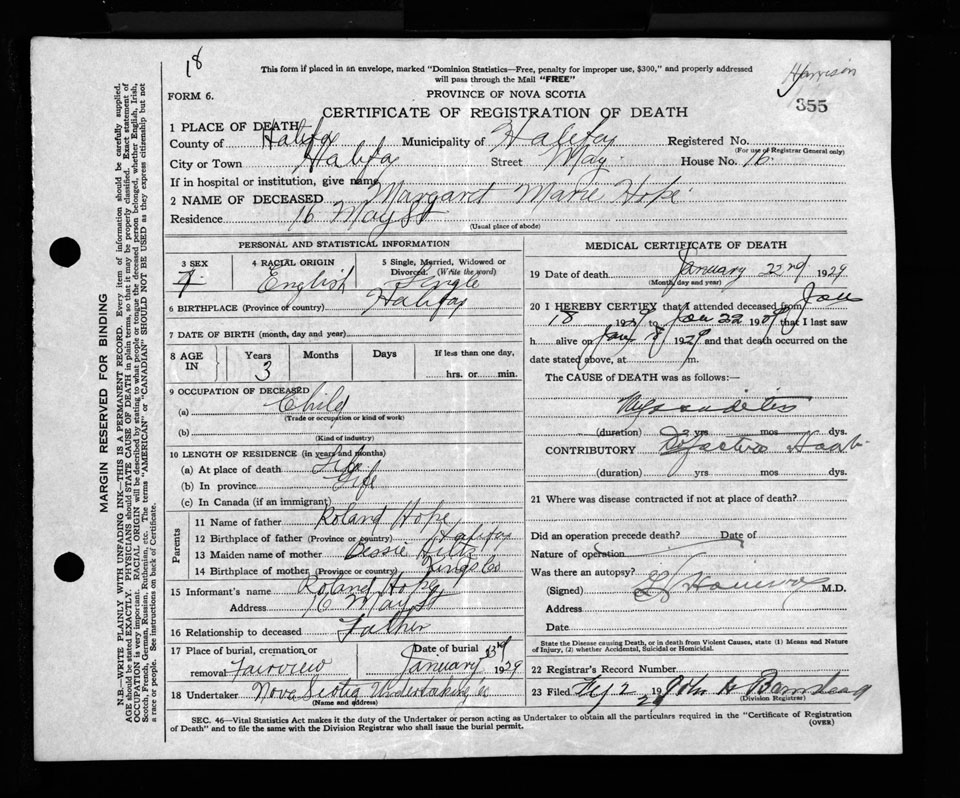 18
This form if placed in an envelope, marked "Dominion Statistics—Free, penalty for improper use, $300," and properly addressed
will pass through the Mail "FREE"
Harrison
355
FORM 6.
PROVINCE OF NOVA SCOTIA
CERTIFICATE OF REGISTRATION OF DEATH
1 PLACE OF DEATH
County of Halifax Municipality of Halifax Registered No.
(For use of Registrar General only)
City or Town Halifax Street May House No. 16
If in hospital or institution, give name
2 NAME OF DECEASED Margaret Marie Hope
Residence 16 May St
(Usual place of abode)
PERSONAL AND STATISTICAL INFORMATION
3 SEX F. 4 RACIAL ORIGIN English 5 Single, Married, Widowed or Divorced. (Write the word) Single
6 BIRTHPLACE (Province or country) Halifax
7 DATE OF BIRTH (month, day and year)
8 AGE IN Years 3 Months Days If less than one day, hrs. or min.
9 OCCUPATION OF DECEASED
(a) Child
(Trade or occupation or kind of work)
(b)
(Kind of industry)
10 LENGTH OF RESIDENCE (in years and months)
(a) At place of death Life
(b) In province Life
(c) In Canada (if an immigrant)
Parents
11 Name of father Roland Hope
12 Birthplace of father (Province or country) Halifax
13 Maiden name of mother Bessie Hiltz
14 Birthplace of mother (Province or country) Kings Co
15 Informant's name Roland Hope
Address 16 May St
16 Relationship to deceased Father
17 Place of burial, cremation or removal Fairview Date of burial January 1929
18 Undertaker Nova Scotia Undertaking Co
(Name and address)
MEDICAL CERTIFICATE OF DEATH
19 Date of death January 22nd 1929
(Month, day and year)
20 I HEREBY CERTIFY that I attended deceased from Jan
18 1929 to Jan 22 1929 that I last saw
h alive on Jan 1929 and that death occurred on the
date stated above, at m.
The CAUSE of DEATH was as follows:—
(duration) yrs mos dys.
CONTRIBUTORY
(duration) yrs mos dys.
21 Where was disease contracted if not at place of death?
Did an operation precede death? Date of
Nature of operation
Was there an autopsy?
(Signed) M.D.
Address
Date
State the Disease causing Death, or in death from Violent Causes, state (1) Means and Nature
of Injury, (2) whether Accidental, Suicidal or Homicidal.
22 Registrar's Record Number
23 Filed 2 1929 John H Barnstead
(Division Registrar)
SEC. 46—Vital Statistics Act makes it the duty of the Undertaker or person acting as Undertaker to obtain all the particulars required in the "Certificate of Registration
of Death" and to file the same with the Division Registrar who shall issue the burial permit.
(OVER)
MARGIN RESERVED FOR BINDING
N.B.—WRITE PLAINLY WITH UNFADING INK—THIS IS A PERMANENT RECORD. Every item of information should be carefully supplied.
AGE should be stated EXACTLY. PHYSICIANS should STATE CAUSE OF DEATH in plain terms, so that it may be properly classified. Exact statement of
OCCUPATION is very important. RACIAL ORIGIN will be described by stating to what people or tongue the deceased person belonged, whether English, Irish,
Scotch, French, German, Russian, Ruthenian, etc. The terms "AMERICAN" or "CANADIAN" SHOULD NOT BE USED as they express citizenship but not
a race or people. See instructions on back of Certificate.